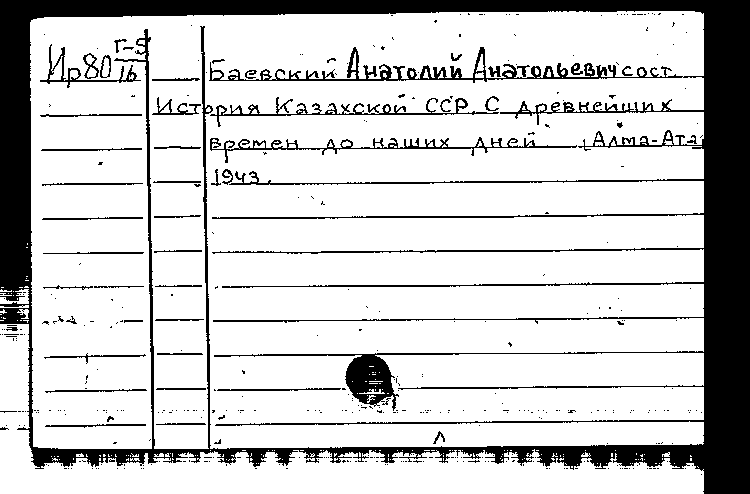 Ир80 Г-5/16 Баевский Анатолий Анатольевич сост.
История Казахской ССР. С древнейших
времен до наших дней [Алма-Ата
1943.